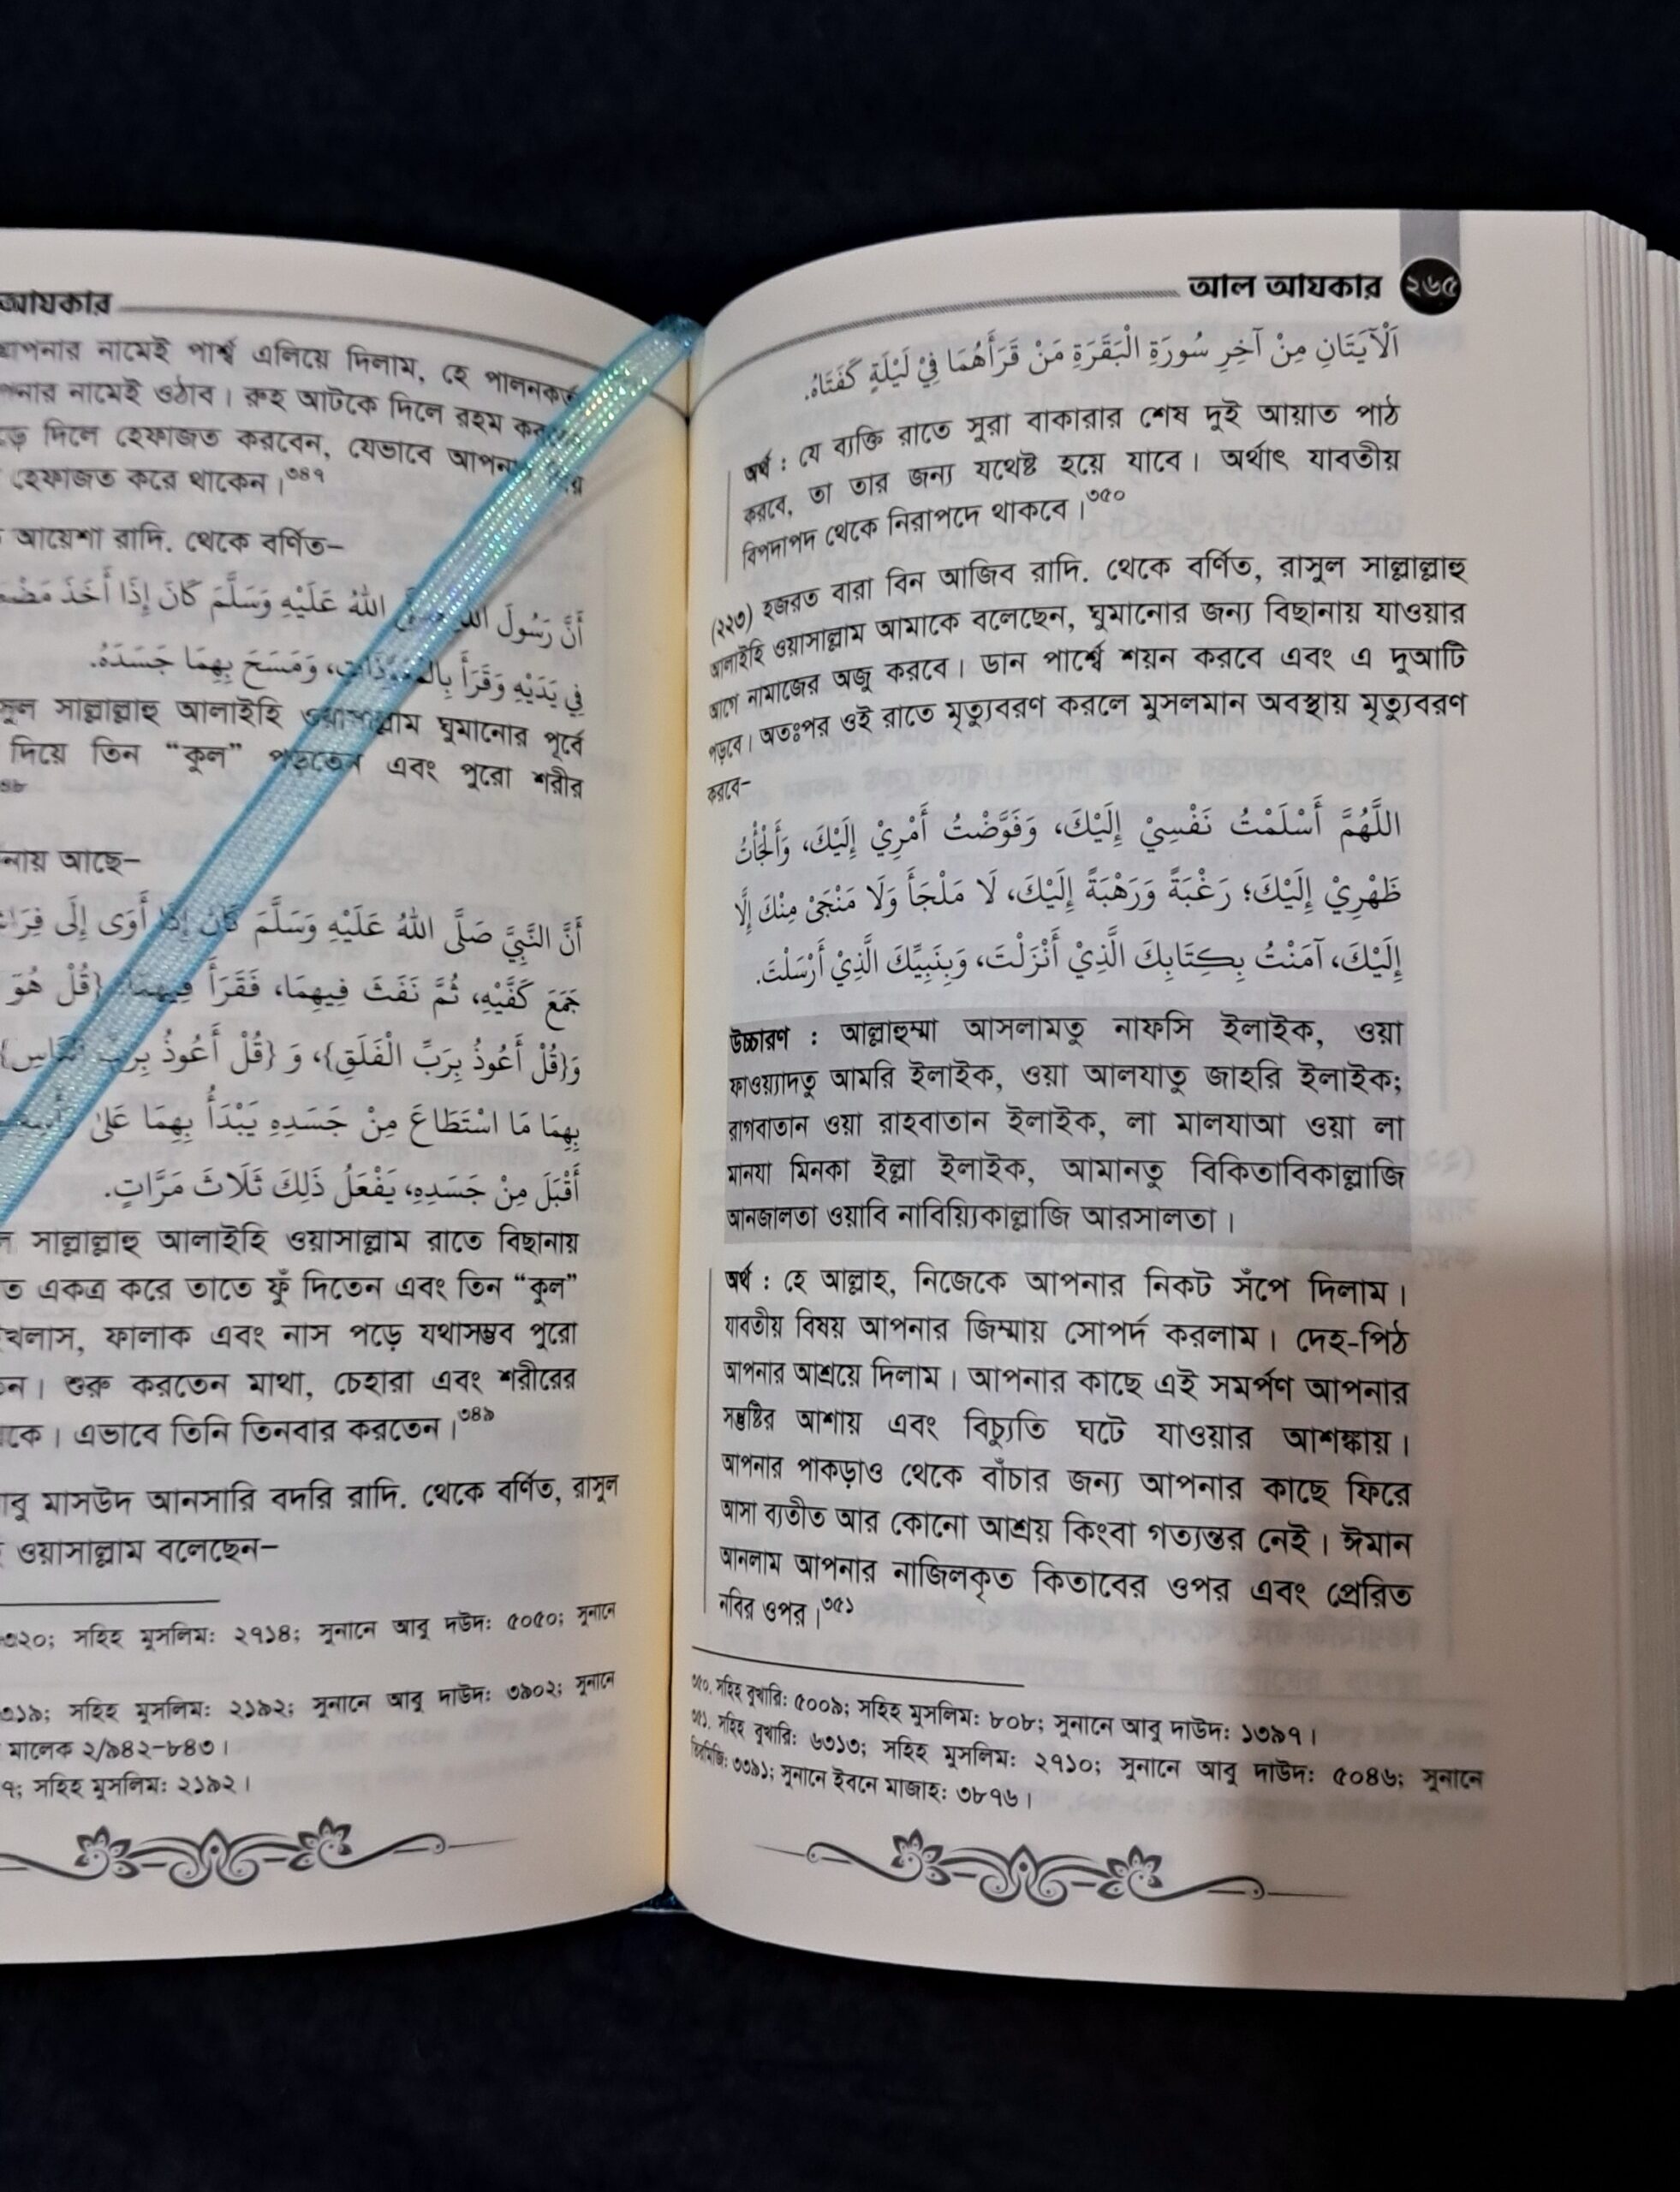 আযকার
আপনার নামেই পার্শ্ব এলিয়ে দিলাম, হে
নামেই ওঠাব। রুহ আটকে দিলে রহম
দিলে হেফাজত করবেন, যেভাবে
হেফাজত করে থাকেন।৩৪৭
আয়েশা রাদি. থেকে বর্ণিত–
أَنَّ رَسُولَ اللهِ صَلَّى اللهُ عَلَيْهِ وَسَلَّمَ كَانَ إِذَا أَخَذَ
فِي يَدَيْهِ وَقَرَأَ بِالْمُعَوِّذَاتِ، وَمَسَحَ بِهِمَا جَسَدَهُ.
সাল্লাল্লাহু আলাইহি ওয়াসাল্লাম ঘুমানোর পূর্বে
দিয়ে তিন “কুল” পড়তেন এবং পুরো শরীর
আছে–
أَنَّ النَّبِيَّ صَلَّى اللهُ عَلَيْهِ وَسَلَّمَ كَانَ إِذَا أَوَى إِلَى
جَمَعَ كَفَّيْهِ، ثُمَّ نَفَثَ فِيهِمَا، فَقَرَأَ فِيهِمَا {قُلْ هُوَ
وَ{قُلْ أَعُوذُ بِرَبِّ الْفَلَقِ}، وَ {قُلْ أَعُوذُ بِرَبِّ النَّاسِ}
بِهِمَا مَا اسْتَطَاعَ مِنْ جَسَدِهِ يَبْدَأُ بِهِمَا عَلَى
أَقْبَلَ مِنْ جَسَدِهِ، يَفْعَلُ ذَلِكَ ثَلَاثَ مَرَّاتٍ.
সাল্লাল্লাহু আলাইহি ওয়াসাল্লাম রাতে বিছানায়
একত্র করে তাতে ফুঁ দিতেন এবং তিন “কুল”
ফালাক এবং নাস পড়ে যথাসম্ভব পুরো
শুরু করতেন মাথা, চেহারা এবং শরীরের
এভাবে তিনি তিনবার করতেন।৩৪৯
মাসউদ আনসারি বদরি রাদি. থেকে বর্ণিত, রাসুল
ওয়াসাল্লাম বলেছেন–
সহিহ মুসলিম: ২৭১৪; সুনানে আবু দউদ: ৫০৫০; সুনানে
সহিহ মুসলিম: ২১৯২; সুনানে আবু দাউদ: ৩৯০২; সুনানে
মালেক ২/৯৪২–৮৪৩।
সহিহ মুসলিম: ২১৯২।
আল আযকার ২৬৫
اَلْآيَتَانِ مِنْ آخِرِ سُورَةِ الْبَقَرَةِ مَنْ قَرَأَهُمَا فِيْ لَيْلَةٍ كَفَتَاهُ.
অর্থ : যে ব্যক্তি রাতে সুরা বাকারার শেষ দুই আয়াত পাঠ
করবে, তা তার জন্য যথেষ্ট হয়ে যাবে। অর্থাৎ যাবতীয়
বিপদাপদ থেকে নিরাপদে থাকবে।৩৫০
(২২৩) হজরত বারা বিন আজিব রাদি. থেকে বর্ণিত, রাসুল সাল্লাল্লাহু
আলাইহি ওয়াসাল্লাম আমাকে বলেছেন, ঘুমানোর জন্য বিছানায় যাওয়ার
আগে নামাজের অজু করবে। ডান পার্শ্বে শয়ন করবে এবং এ দুআটি
পড়বে। অতঃপর ওই রাতে মৃত্যুবরণ করলে মুসলমান অবস্থায় মৃত্যুবরণ
করবে–
اللَّهُمَّ أَسْلَمْتُ نَفْسِيْ إِلَيْكَ، وَفَوَّضْتُ أَمْرِيْ إِلَيْكَ، وَأَلْجَأْتُ
ظَهْرِيْ إِلَيْكَ؛ رَغْبَةً وَرَهْبَةً إِلَيْكَ، لَا مَلْجَأَ وَلَا مَنْجَىْ مِنْكَ إِلَّا
إِلَيْكَ، آمَنْتُ بِكِتَابِكَ الَّذِيْ أَنْزَلْتَ، وَبِنَبِيِّكَ الَّذِيْ أَرْسَلْتَ.
উচ্চারণ : আল্লাহুম্মা আসলামতু নাফসি ইলাইক, ওয়া
ফাওয়্যাদতু আমরি ইলাইক, ওয়া আলযাতু জাহরি ইলাইক;
রাগবাতান ওয়া রাহবাতান ইলাইক, লা মালযাআ ওয়া লা
মানযা মিনকা ইল্লা ইলাইক, আমানতু বিকিতাবিকাল্লাজি
আনজালতা ওয়াবি নাবিয়্যিকাল্লাজি আরসালতা।
অর্থ : হে আল্লাহ, নিজেকে আপনার নিকট সঁপে দিলাম।
যাবতীয় বিষয় আপনার জিম্মায় সোপর্দ করলাম। দেহ-পিঠ
আপনার আশ্রয়ে দিলাম। আপনার কাছে এই সমর্পণ আপনার
সন্তুষ্টির আশায় এবং বিচ্যুতি ঘটে যাওয়ার আশঙ্কায়।
আপনার পাকড়াও থেকে বাঁচার জন্য আপনার কাছে ফিরে
আসা ব্যতীত আর কোনো আশ্রয় কিংবা গত্যন্তর নেই। ঈমান
আনলাম আপনার নাজিলকৃত কিতাবের ওপর এবং প্রেরিত
নবির ওপর।৩৫১
৩৫০. সহিহ বুখারি: ৫০০৯; সহিহ মুসলিম: ৮০৮; সুনানে আবু দাউদ: ১৩৯৭।
৩৫১. সহিহ বুখারি: ৬৩১৩; সহিহ মুসলিম: ২৭১০; সুনানে আবু দাউদ: ৫০৪৬; সুনানে
তিরমিজি: ৩৩৯১; সুনানে ইবনে মাজাহ: ৩৮৭৬।